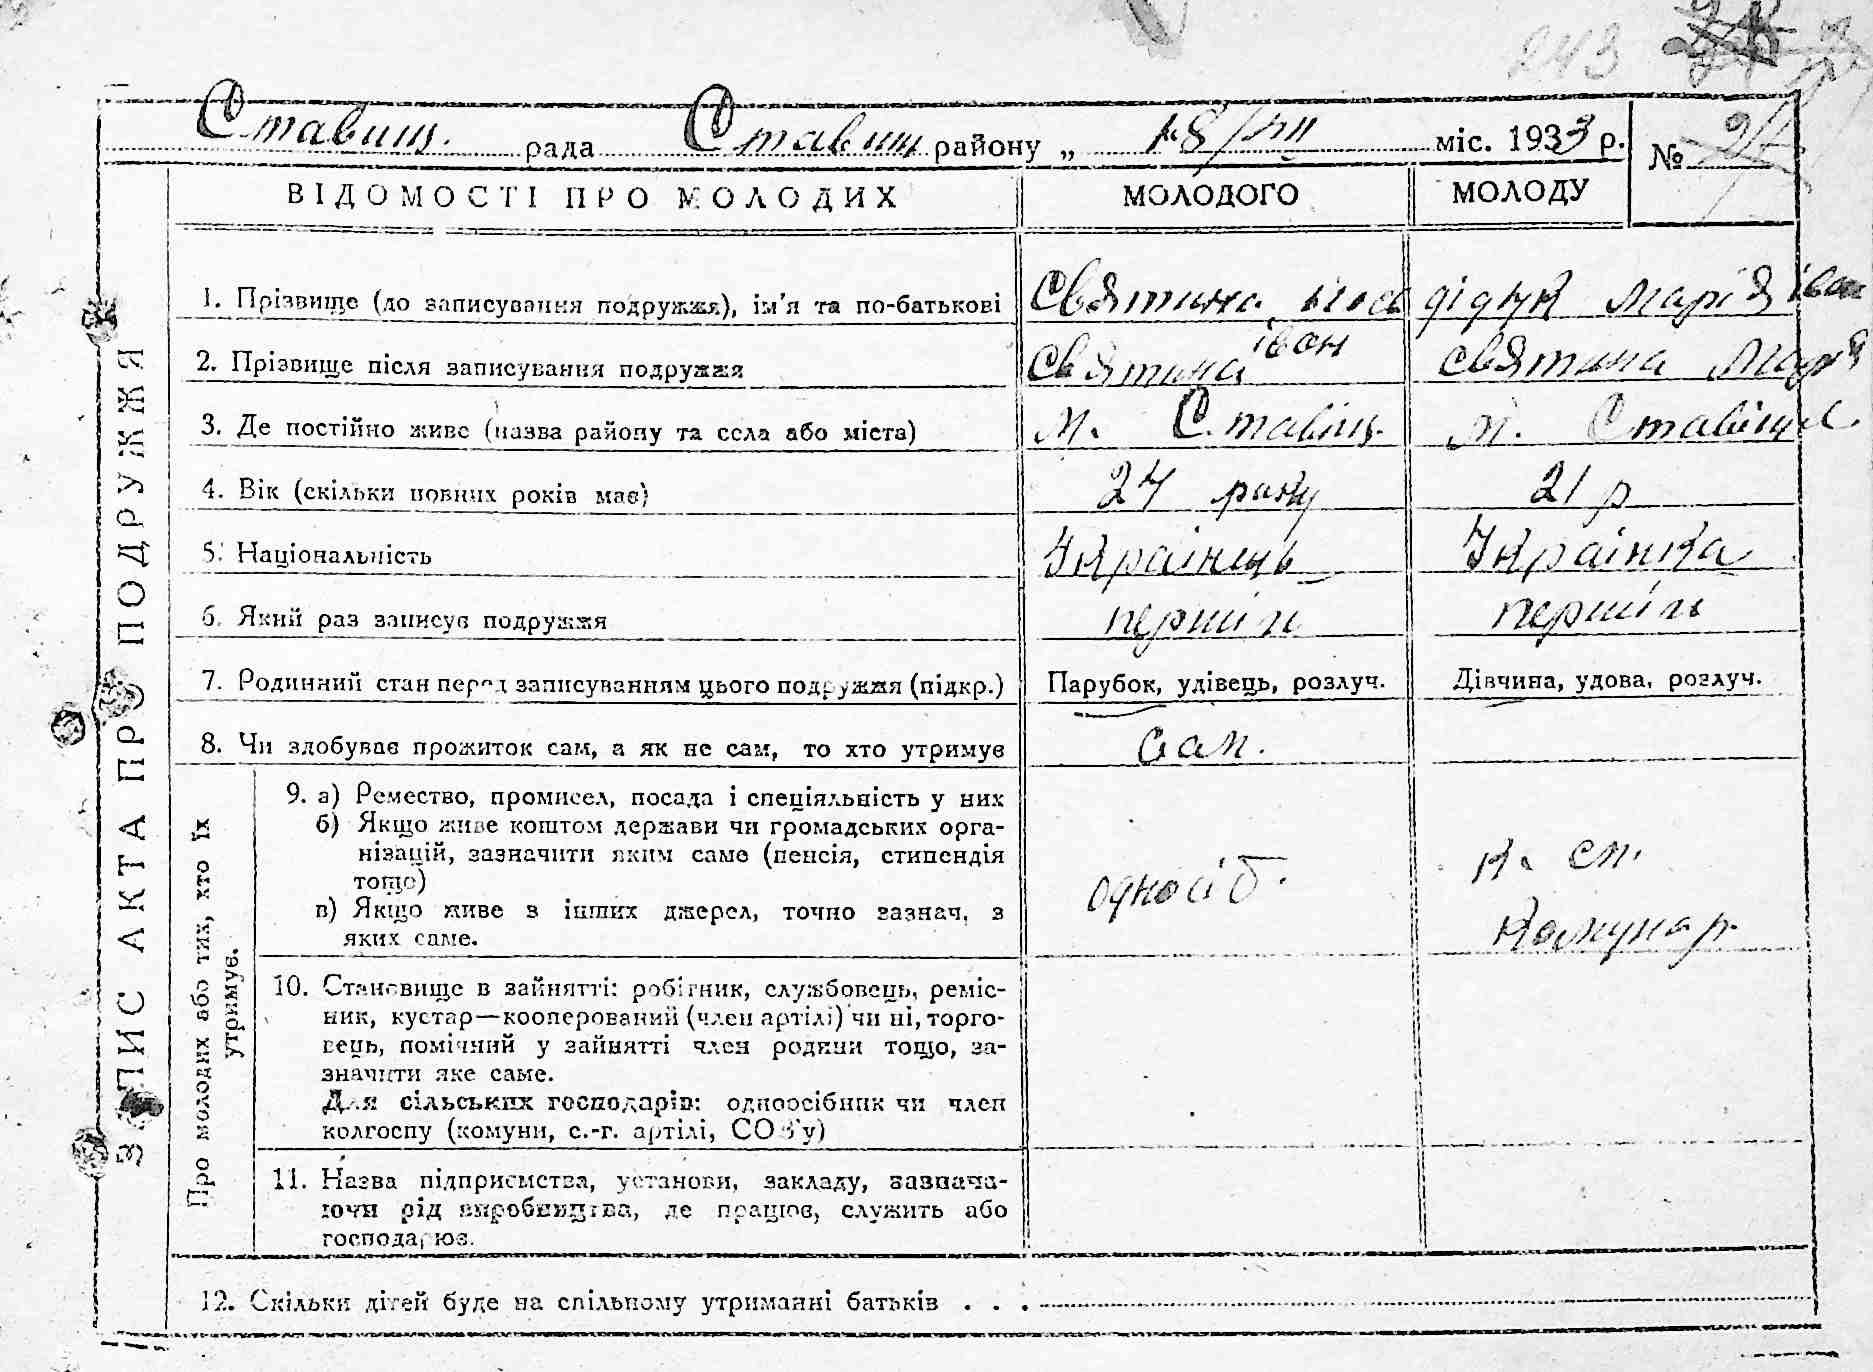 243
Ставищ. рада Ставищ району „ 18/VII міс. 1933 р. №
ВІДОМОСТІ ПРО МОЛОДИХ МОЛОДОГО МОЛОДУ
ЗАПИС АКТА ПРО ПОДРУЖЖЯ
1. Прізвище (до записування подружжя), ім'я та по-батькові Святина Йоси дідук Марія іван
іван
2. Прізвище після записування подружжя Святина святина Марія
3. Де постійно живе (назва району та села або міста) м. Ставищ. м. Ставищ
4. Вік (скільки повних років має) 24 року 21 р
5. Національність Українець Українка
6. Який раз записує подружжя перший перший
7. Родинний стан перед записуванням цього подружжя (підкр.) Парубок, удівець, розлуч. Дівчина, удова, розлуч.
8. Чи здобуває прожиток сам, а як не сам, то хто утримує Сам.
Про молодих або тих, хто їх утримує.
9. а) Ремество, промисел, посада і спеціяльність у них
б) Якщо живе коштом держави чи громадських орга-
нізацій, зазначити яким саме (пенсія, стипендія
тощо)
в) Якщо живе з інших джерел, точно зазнач, з
яких саме.
одноосіб. к. сп.
Комунар.
10. Становище в зайнятті: робітник, службовець, реміс-
ник, кустар—кооперований (член артілі) чи ні, торго-
вець, помічний у зайнятті член родини тощо, за-
значити яке саме.
Для сільських господарів: одноосібник чи член
колгоспу (комуни, с.-г. артілі, СОЗ'у)
11. Назва підприємства, установи, закладу, зазнача-
ючи рід виробництва, де працює, служить або
господарює.
12. Скільки дітей буде на спільному утриманні батьків . . .